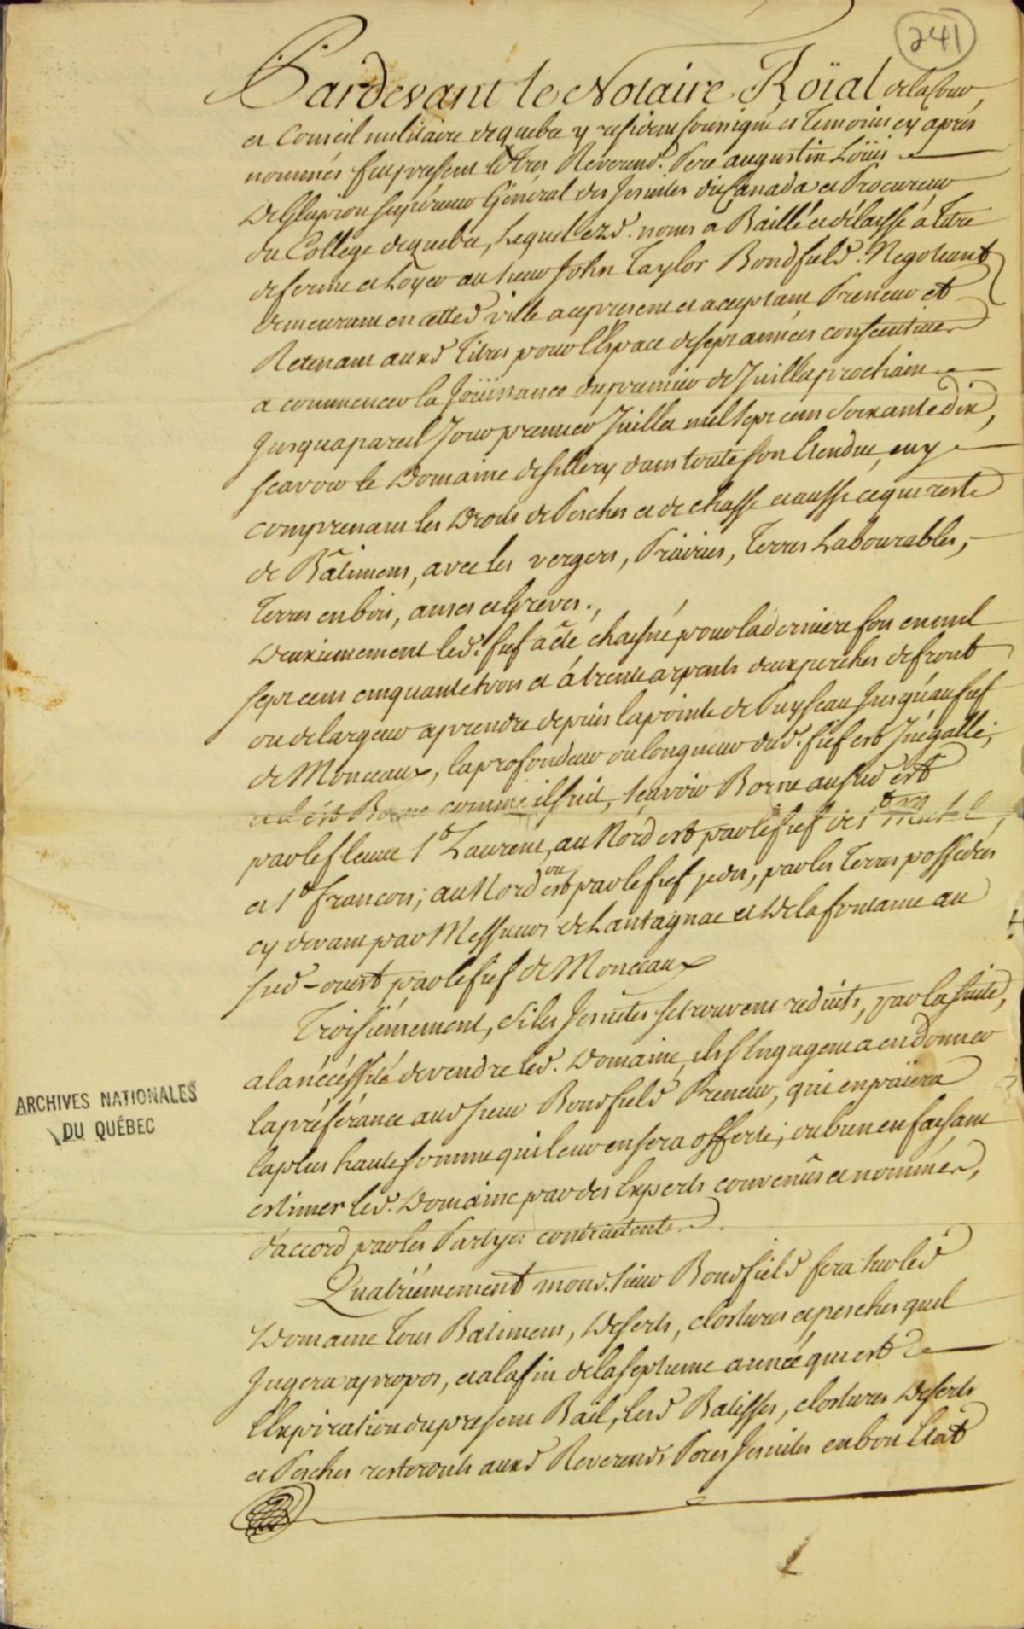 241
Pardevant le Notaire Roïal de la Cour,
et Conseil militaire dequebec y residant soussigné et Temoins cy après
nommés fut present le Tres Reverend. Pere augustin Loüis
De Glapion superieur Général des Jesuites du Canada et Procureur
du College dequebec, Lequel ezd. noms a Baillé et délaissé à titre
de ferme et Loyer au sieur John Taylor Bondfield. Negotiant
demeurant en cette d. ville a ce present et acceptant Preneur et
Retenant aud Titres pour l'Espace de sept années consecutives
a commencer la Joüissance du premier de Juillet prochain
Jusqu'a pareil Jour premier Juillet mil sept cent soixante dix,
scavoir le Domaine de sillery dans toute son Etendue, en y
comprenant les Droits de Pesches et de chasse et aussi ce qui reste
de Bâtimens, avec les vergers, Prairies, Terres Labourables,
Terres en bois, anses et Greves.
Deuxiemement led. fief a été chaisné pour la derniere fois en mil
sept cens cinquante trois et à trente arpents deux perches de front
ou de largeur a prendre depuis la pointe de Puyseau Jusqu'au fief
de Monceaux, la profondeur ou longueur dud. fief est Inégalle;
comme il suit, scavoir Borné au sud est
par le fleuve St Laurent, au Nord est par le fief de St Michel,
et St francois; au Nord ouest par le fief , par les Terres possedées
cy devant par Messieurs de Lantagnac et De la fontaine au
sud-ouest par le fief de Monceaux
Troisiémement, si les Jesuites se trouvent reduits, par la suite,
a la nécéssité de vendre led. Domaine, ils s'Engagent a en donner
la préférance aud sieur Bondfield Preneur, qui en païera
la plus haute somme qui leur en sera offerte; ou bien en faisant
estimer led. Domaine par des Experts convenûs et nommés,
d'accord par les Partyes contractantes.
Quatriémement mond. sieur Bondfield fera sur led
Domaine Tous Batimens, Deserts, clostures et pesches quil
Jugera apropos, et a la fin de la septieme année qui est
l'Expiration du present Bail, lesd Batisses, clostures Deserts
et Pesches resteronts auxd Reverends Peres Jesuites en bon Etat
ARCHIVES NATIONALES
DU QUÉBEC